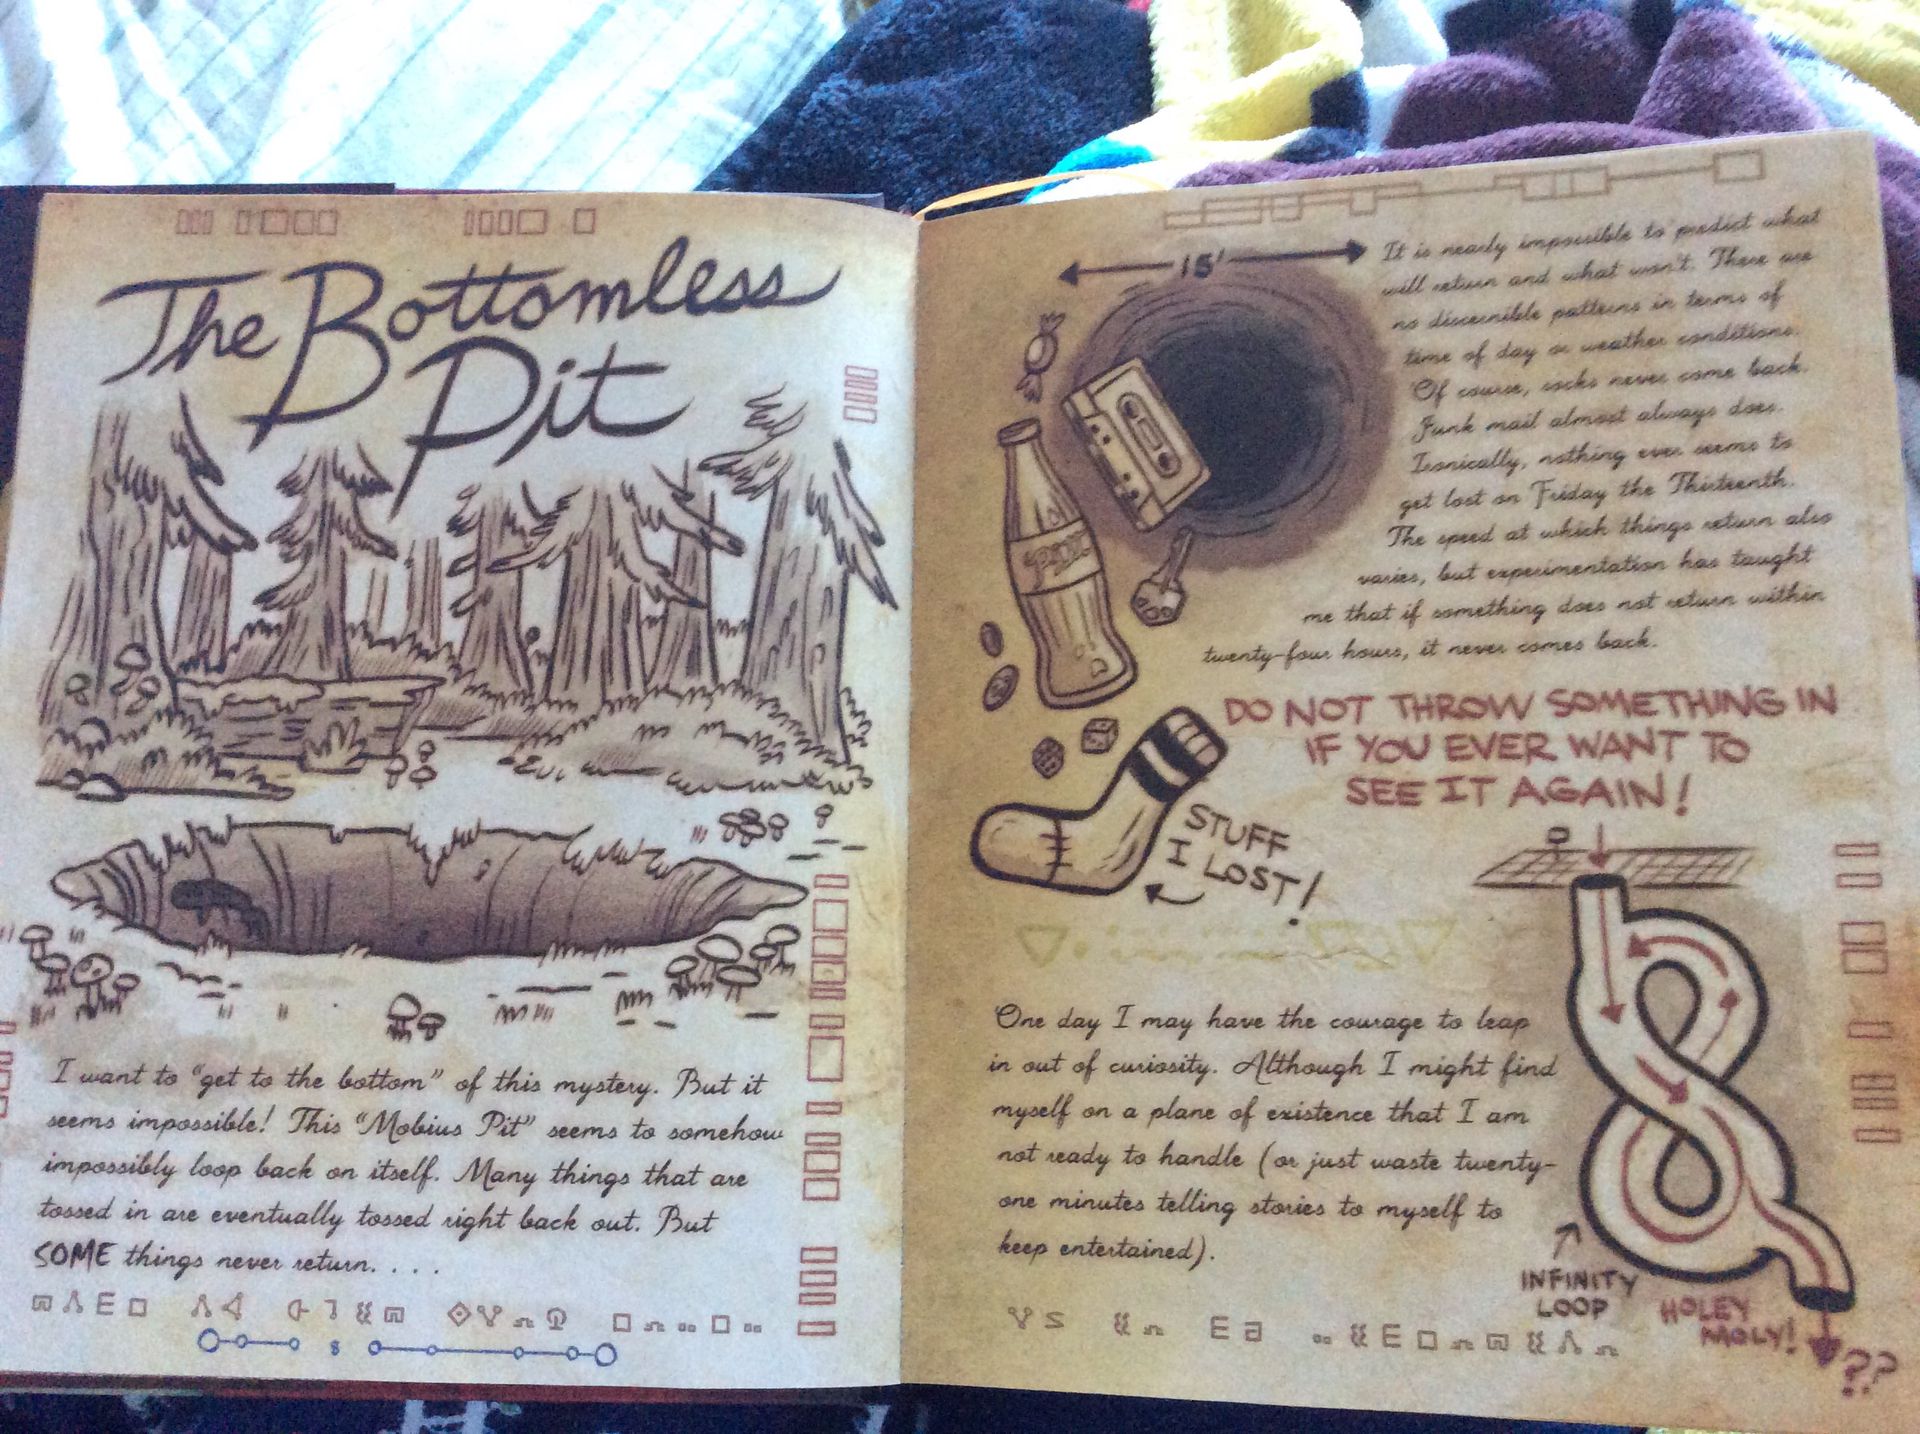 The Bottomless
Pit
I want to "get to the bottom" of this mystery. But it
seems impossible! This "Mobius Pit" seems to somehow
impossibly loop back on itself. Many things that are
tossed in are eventually tossed right back out. But
SOME things never return. . . .
8
15'
It is nearly impossible to predict what
will return and what won't. There are
no discernible patterns in terms of
time of day or weather conditions.
Of course, socks never come back.
Junk mail almost always does.
Ironically, nothing ever seems to
get lost on Friday the Thirteenth.
The speed at which things return also
varies, but experimentation has taught
me that if something does not return within
twenty-four hours, it never comes back.
DO NOT THROW SOMETHING IN
IF YOU EVER WANT TO
SEE IT AGAIN!
STUFF
I LOST!
One day I may have the courage to leap
in out of curiosity. Although I might find
myself on a plane of existence that I am
not ready to handle (or just waste twenty-
one minutes telling stories to myself to
keep entertained).
INFINITY
LOOP
HOLEY
MOLY!
??